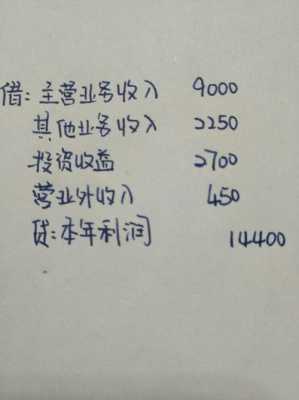 借:主营业务收入 9000
其他业务收入 2250
投资收益 2700
营业外收入 450
贷:本年利润 14400